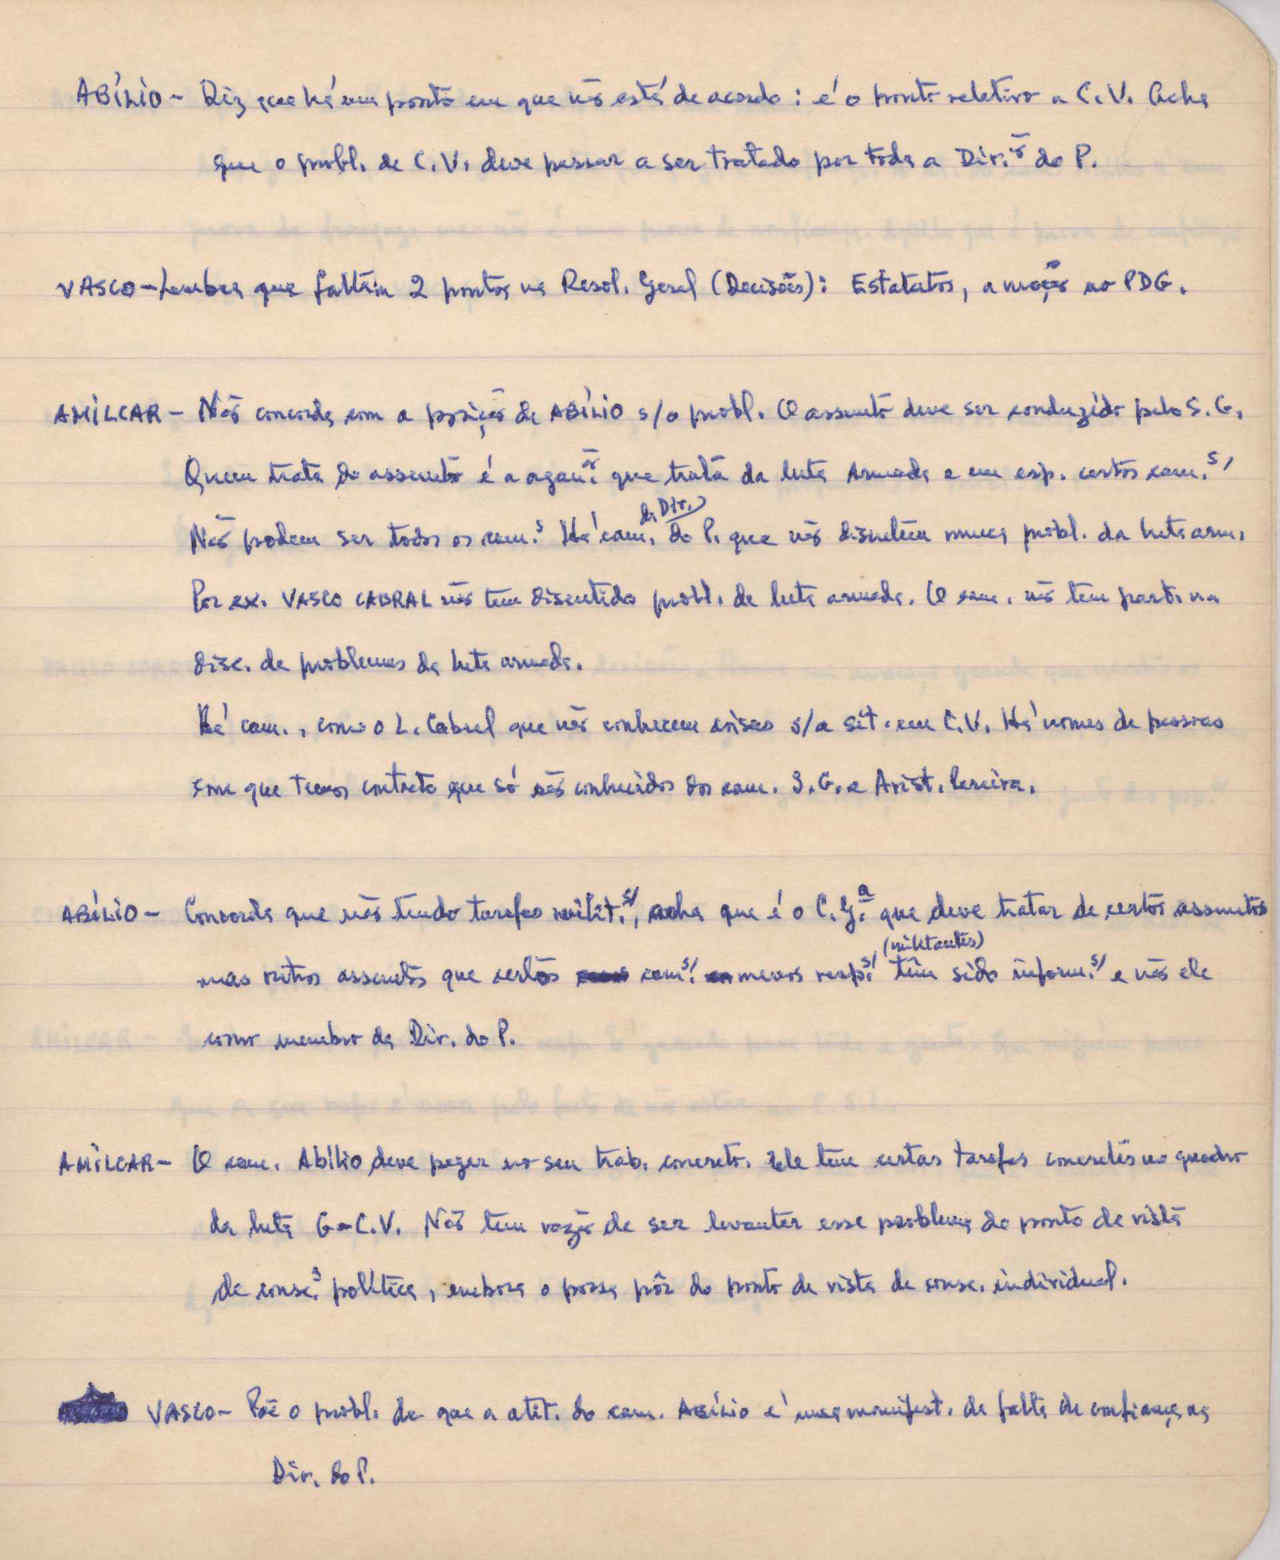 ABÍLIO - Diz que há um ponto em que não está de acordo: é o ponto relativo a C.V. Acha
que o probl. de C.V. deve passar a ser tratado por toda a Dir.ão do P.
VASCO - Lembra que faltam 2 pontos na Resol. Geral (Decisões): Estatutos, a moção ao PDG.
AMÍLCAR - Não concorda com a posição de ABÍLIO s/o probl. O assunto deve ser conduzido pelo S.G.
Quem trata do assunto é a organ.ão que trata da luta armada e em esp. certos cam.s/
Não podem ser todos os cam.s Há cam. da Dir. do P. que não discutem nunca probl. da luta arm.
Por ex. VASCO CABRAL não tem discutido probl. da luta armada. O cam. não tem parte na
disc. de problemas da luta armada.
Há cam., como o L. Cabral que não conhecem coisas s/a sit. em C.V. Há nomes de pessoas
com que temos contacto que só são conhecidos dos cam. S.G. e Arist. Pereira.
ABÍLIO - Concorda que não tendo tarefas milit.s/, acha que é o C.G.a que deve tratar de certos assuntos
mas outros assuntos que certos cam.s/ menos resp.s/ (militantes) têm sido inform.s/ e não ele
como membro da Dir. do P.
AMÍLCAR - O cam. Abílio deve pegar no seu trab. concreto. Ele tem certas tarefas concretas no quadro
da luta G-C.V. Não tem razão de ser levantar esse problema do ponto de vista
de consc.a política, embora o possa pôr do ponto de vista de consc. individual.
VASCO - Põe o probl. de que a atit. do cam. ABÍLIO é uma manifest. de falta de confiança na
Dir. do P.